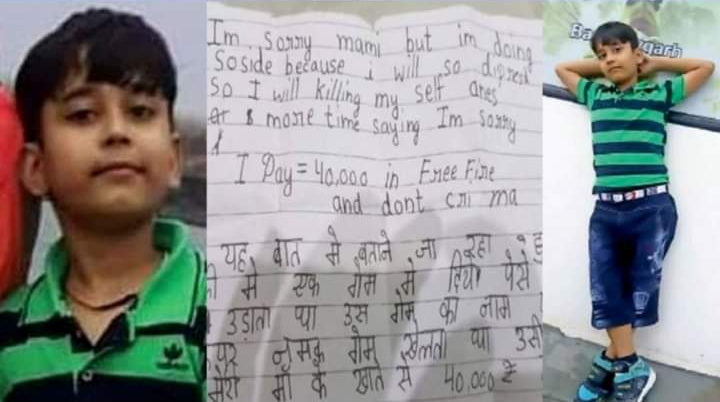 Im sorry mami but im doing
Soside because i will so dipresd
So I will killing my self ones
or more time saying Im sorry
I Pay = 40,000 in Free Fire
and dont cri ma
यह बात मे बताने जा रहा हु
मे एक गेम मे दिये पेसे
उड़ाता था उस गेम का नाम
नामक गेम खेलता था उसी
मेरी माँ के खाते से 40,000 ₹
garh